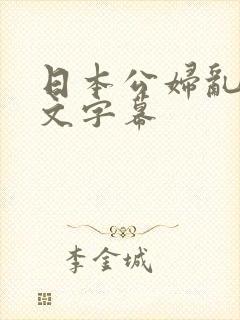 日本公婦亂
文字幕
李金城